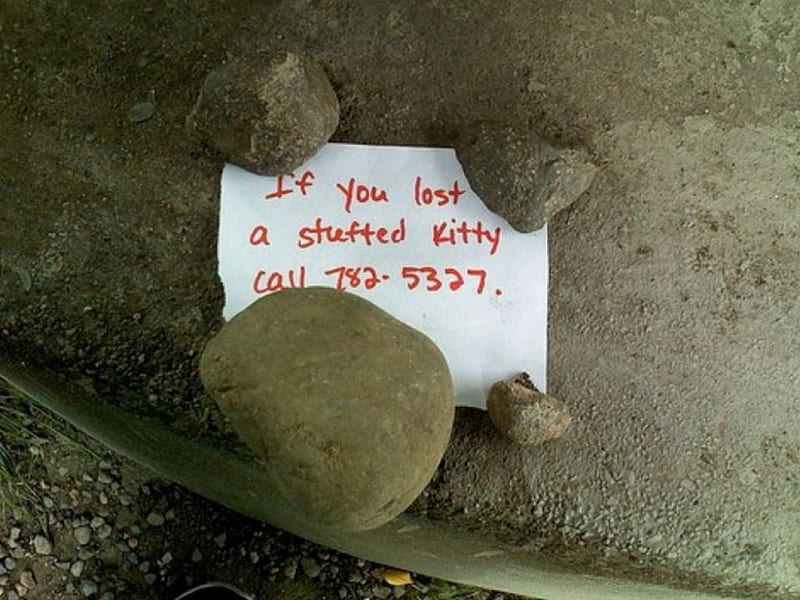 If you lost
a stuffed Kitty
call 782-5327.